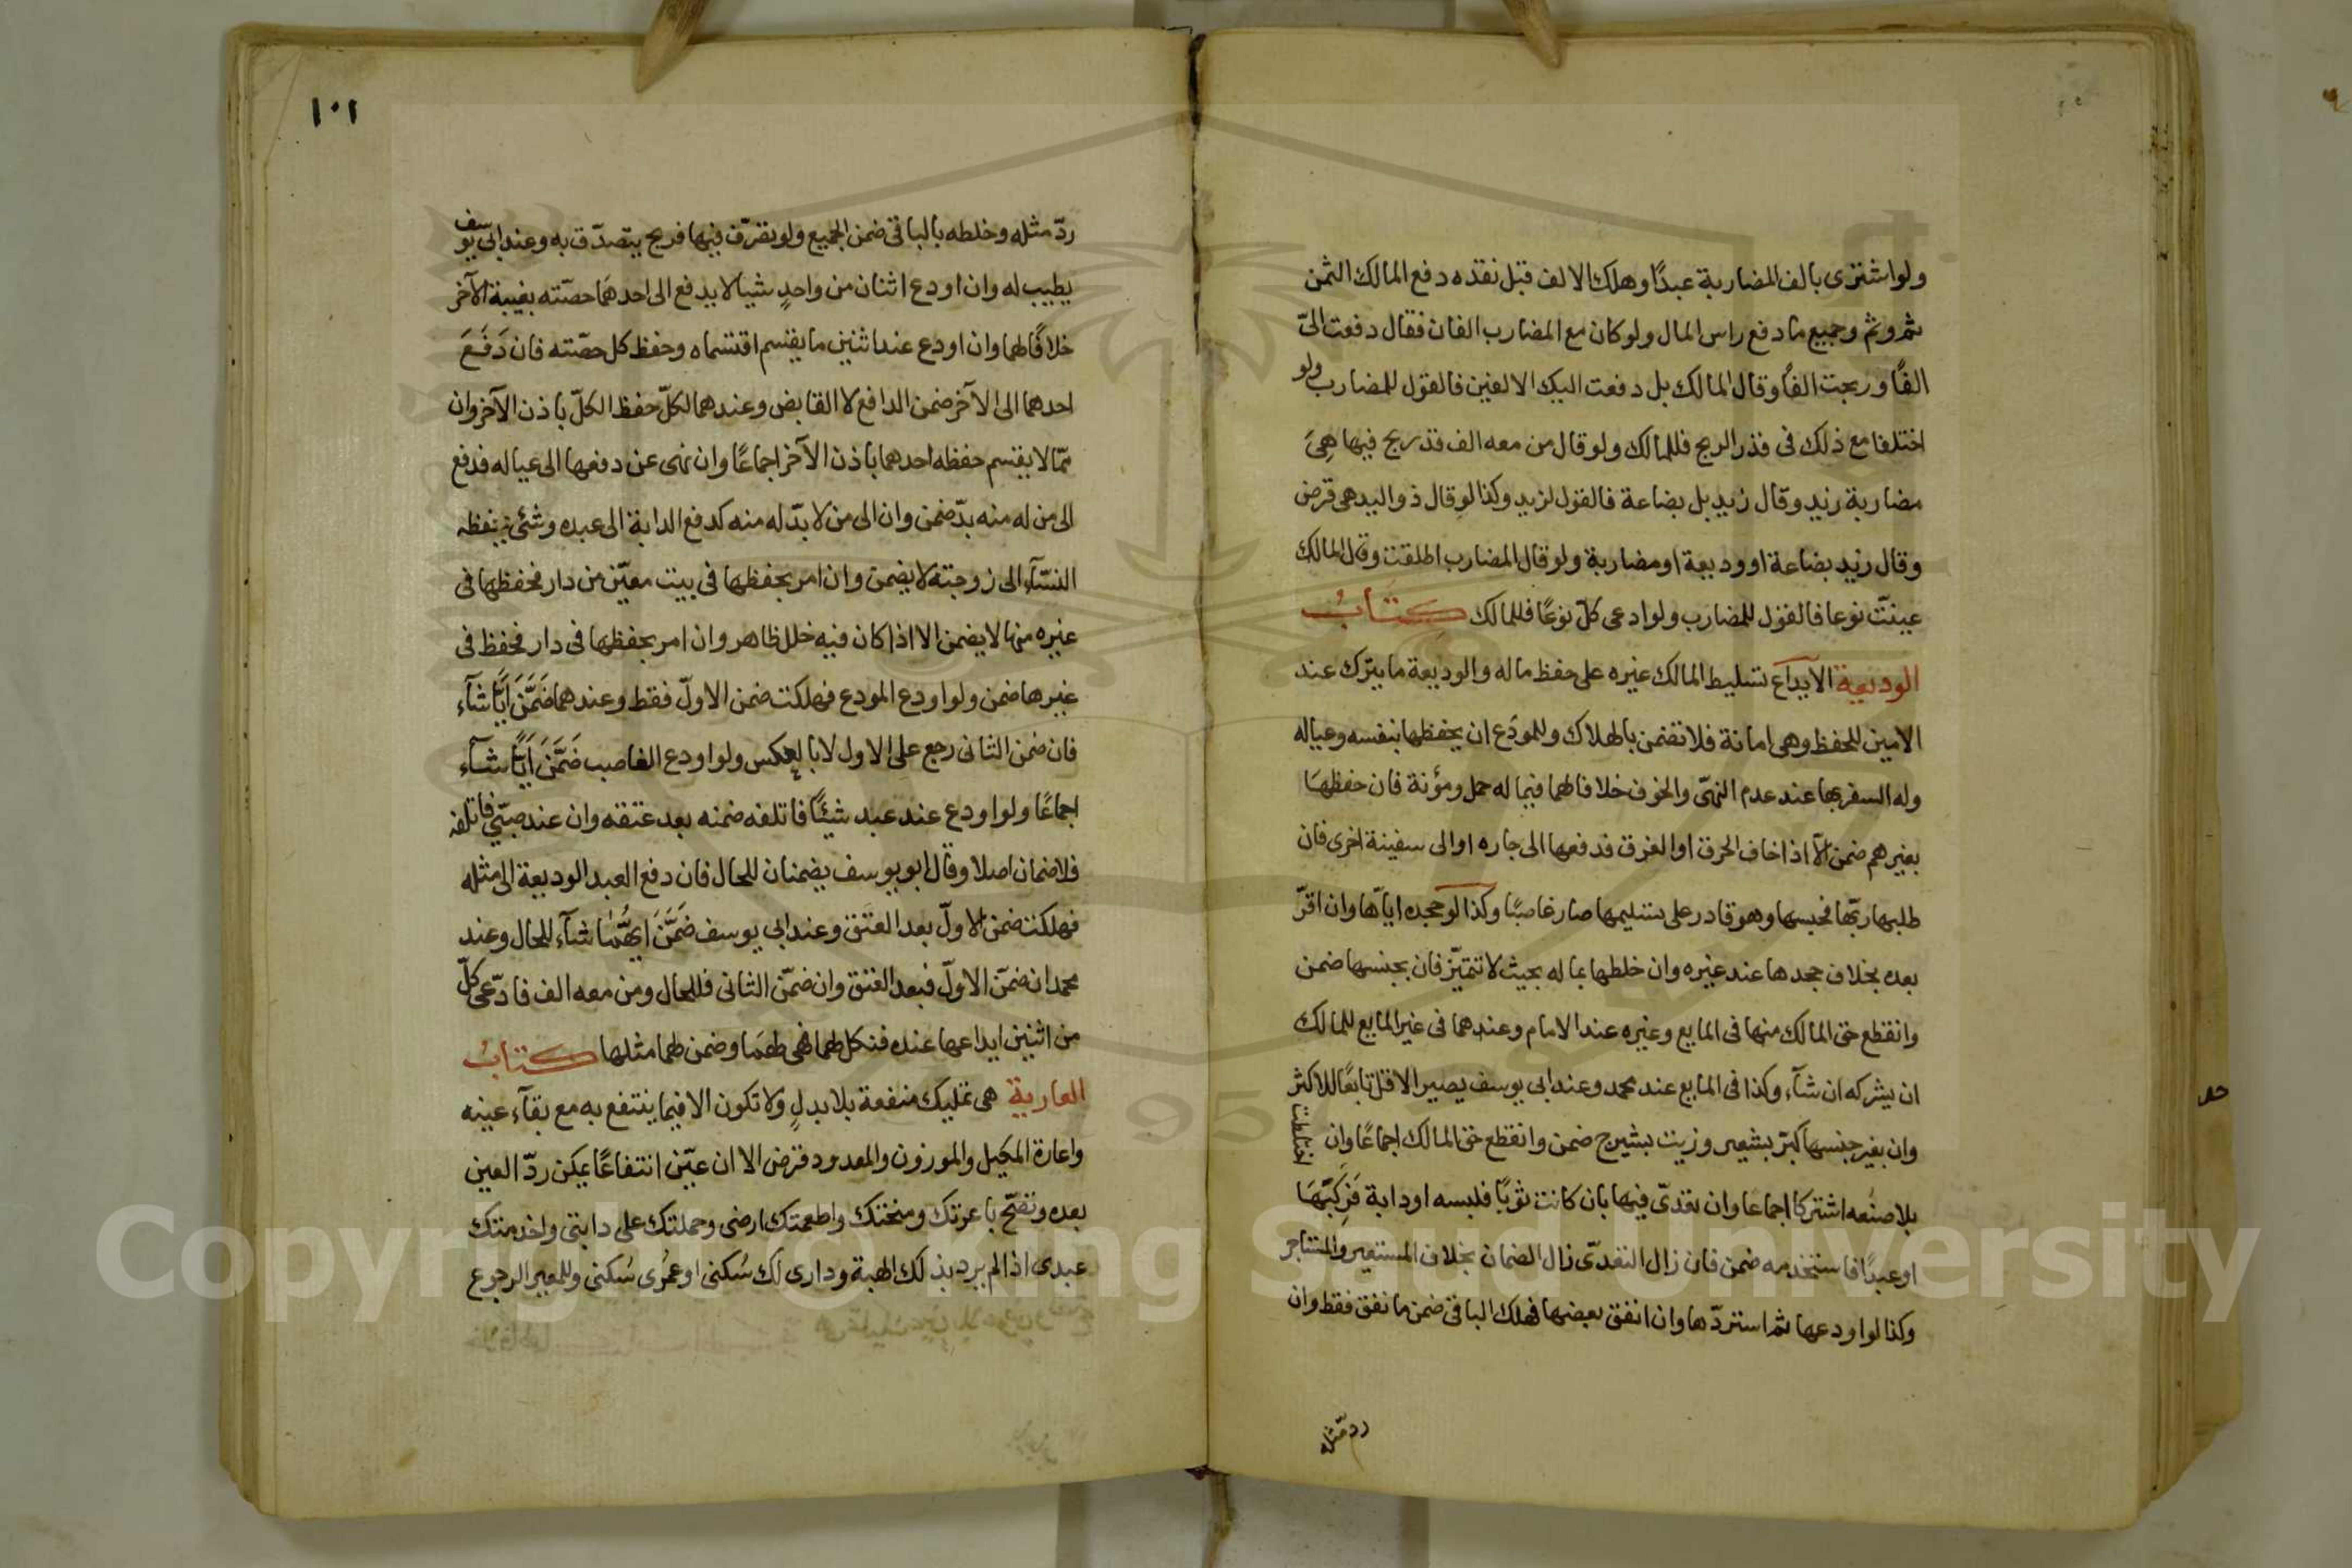 ولو اشترى بالف المضاربة عبدًا وهلك الالف قبل نقده دفع المالك الثمن
ثم وثم وجميع ما دفع راس المال ولو كان مع المضارب الفان فقال دفعت الىّ
الفًا وربحت الفًا وقال المالك بل دفعت اليك الالفين فالقول للمضارب ولو
اختلفا مع ذلك فى قدر الربح فللمالك ولو قال من معه الف قد ربح فيها هِىَ
مضاربة زيد وقال زيد بل بضاعة فالقول لزيد وكذا لو قال ذو اليد هى قرض
وقال زيد بضاعة او وديعة او مضاربة ولو قال المضارب اطلقت وقال المالك
عينتَ نوعا فالقول للمضارب ولو ادعى كلّ نوعًا فللمالك كتابُ
الوديعة الايداع تسليط المالك غيره على حفظ ماله والوديعة ما يترك عند
الامين للحفظ وهى امانة فلا تضمن بالهلاك وللمودَع ان يحفظها بنفسه وعياله
وله السفر بها عند عدم النهى والخوف خلافا لهما فيما له حمل ومؤنة فان حفظهَا
بغيرهم ضمن الّا اذا خاف الحرق او الغرق فدفعها الى جاره او الى سفينة اخرى فان
طلبها ربّها فحبسها وهو قادر على تسليمها صار غاصبًا وكذا لو جحده اياها وان اقرّ
بعده بخلاف جحدها عند غيره وان خلطها بماله بحيث لا تتميّز فان بجنسها ضمن
وانقطع حق المالك منها فى المايع وغيره عند الامام وعندهما فى غير المايع للمالك
ان يشركه ان شآء وكذا فى المايع عند محمد وعند ابى يوسف يصير الاقل تابعًا للاكثر
وان بغير جنسها كبرّ بشعير وزيت بشيرج ضمن وانقطع حق المالك اجماعًا وان اختلطت
بلا صنعه اشتركا اجماعا وان تعدّى فيها بان كانت ثوبًا فلبسه او دابة فَرَكِبَهَا
او عبدًا فاستخدمه ضمن فان زال التعدّى زال الضمان بخلاف المستعير والمستاجر
وكذا لو اودعها ثم استردّها وان انفق بعضها فهلك الباقى ضمن ما نفق فقط وان
رد مثله
١٠١
ردّ مثله وخلطه بالباقى ضمن الجميع ولو تصرّف فيها فربح يتصدّق به وعند ابى يوسف
يطيب له وان اودع اثنان من واحدٍ شيا لا يدفع الى احدهما حصّته بغيبة الآخر
خلافًا لهما وان اودع عند اثنين ما يقسم اقتسماه وحفظ كل حصّته فان دَفَعَ
احدهما الى الآخر ضمن الدافع لا القابض وعندهما لكلّ حفظ الكلّ باذن الآخر وان
ممّا لا يقسم حفظه احدهما باذن الآخر اجماعًا وان نهى عن دفعها الى عياله فدفع
الى من له منه بدّ ضمن وان الى من لا بدّ له منه كدفع الدابة الى عبده وشئ يحفظه
النسّآء الى زوجته لا يضمن وان امر بحفظها فى بيت معيّن من دار فحفظها فى
غيره منها لا يضمن الا اذا كان فيه خلل ظاهر وان امر بحفظها فى دار فحفظ فى
غيرها ضمن ولو اودع المودع فهلكت ضمن الاولّ فقط وعندهما ضَمَّنَ ايًّا شآء
فان ضمن الثانى رجع على الاول لا بالعكس ولو اودع الغاصب ضَمَّنَ اَيًّا شآء
اجماعًا ولو اودع عند عبد شيئًا فاتلفه ضمنه بعد عتقه وان عند صبّي فاتلفه
فلا ضمان اصلا وقال ابو يوسف يضمنان للحال فان دفع العبد الوديعة الى مثله
فهلكت ضمن الاولّ بعد العتق وعند ابى يوسف ضَمَّنَ ايُّهُمٰا شآء للحال وعند
محمد ان ضمّن الاولّ فبعد العتق وان ضمّن الثانى فللحال ومن معه الف فادّعى كلّ
من اثنين ايداعها عنده فنكل لهما فهى لهمَا وضمن لهما مثلها كتابُ
العارية هى تمليك منفعة بلا بدلٍ ولا تكون الا فيما ينتفع به مع بقآء عينه
واعارة المكيل والموزون والمعدود قرض الا ان عيّن انتفاعًا يمكن ردّ العين
بعده وتصّح باعرتك ومنحتك واطعمتك ارضى وحملتك على دابتى واخدمتك
عبدى اذا لم يرد بذلك الهبة ودارى لك سُكنى او عمرُى سُكنى وللمعير الرجوع
Copyright © King Saud University